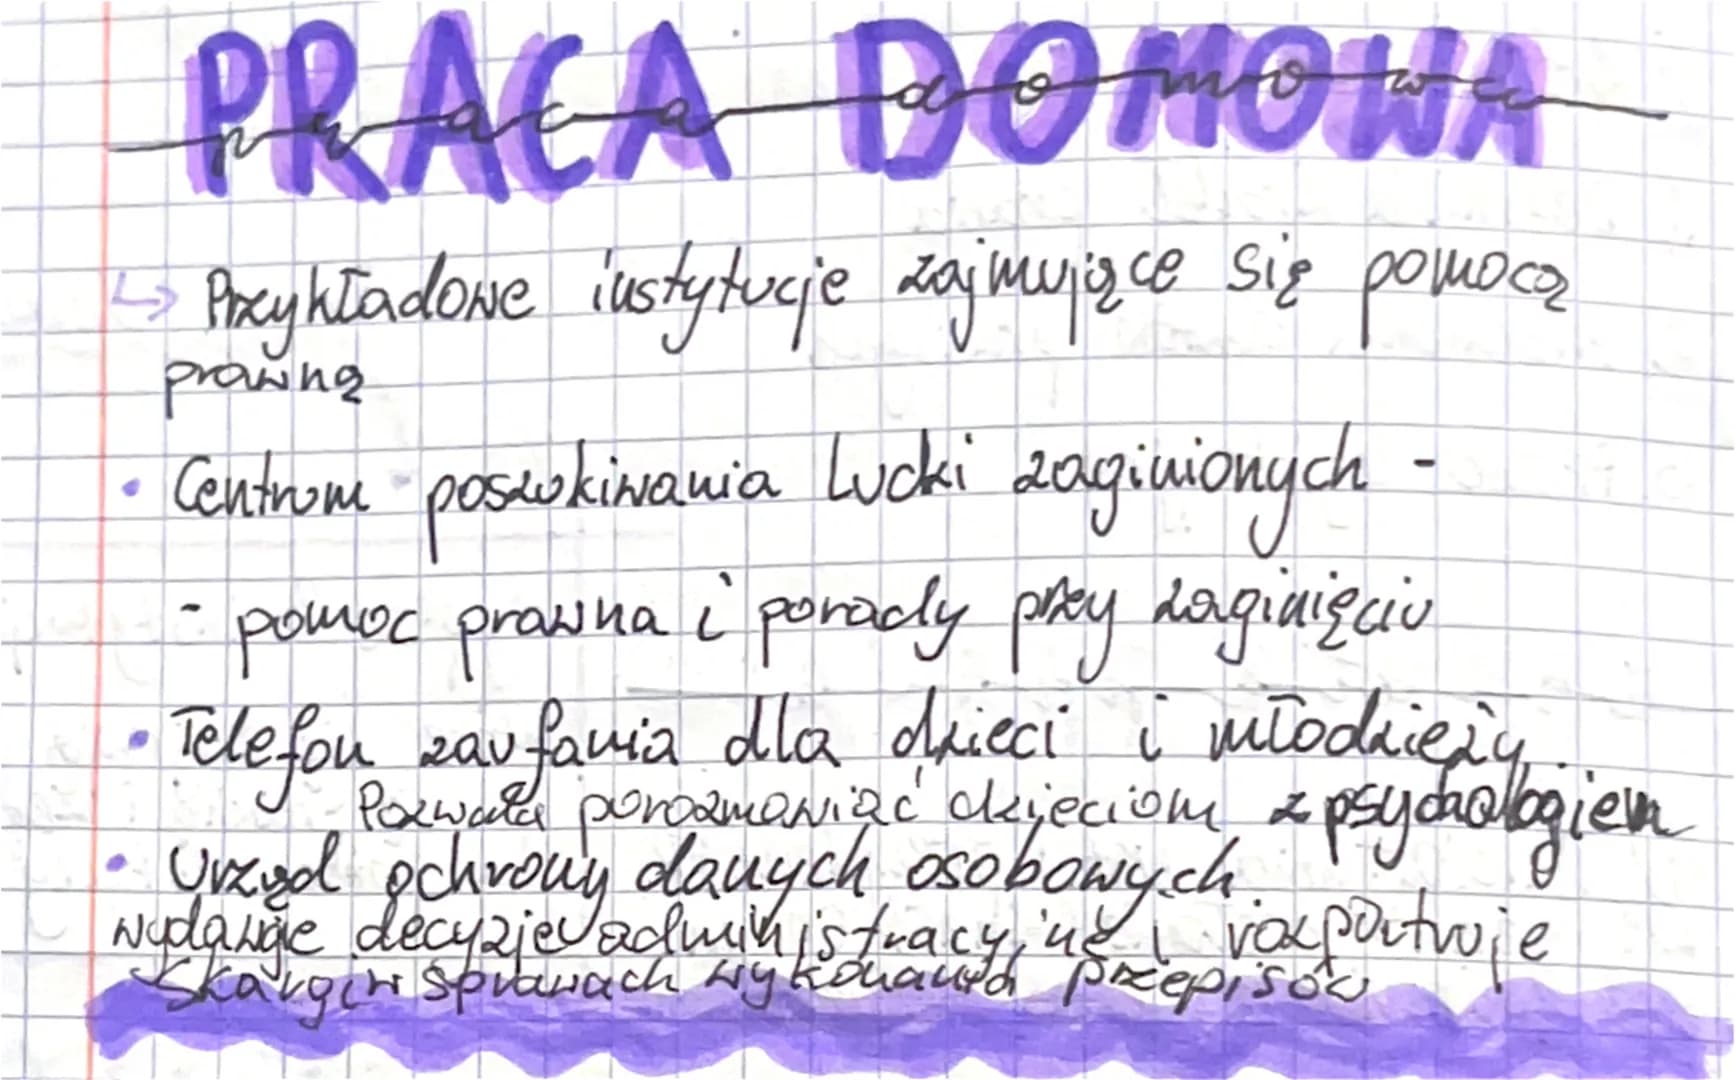 PRACA DOMOWA
praca domowa
↳ Przykładowe instytucje zajmujące się pomocą
prawną
• Centrum poszukiwania ludzi zaginionych -
- pomoc prawna i porady przy zaginięciu
• Telefon zaufania dla dzieci i młodzieży
Pozwala porozmawiać dzieciom z psychologiem
• Urząd ochrony danych osobowych
wydawaje decyzje administracyjne i rozpatruje
skargi w sprawach wykonania przepisów